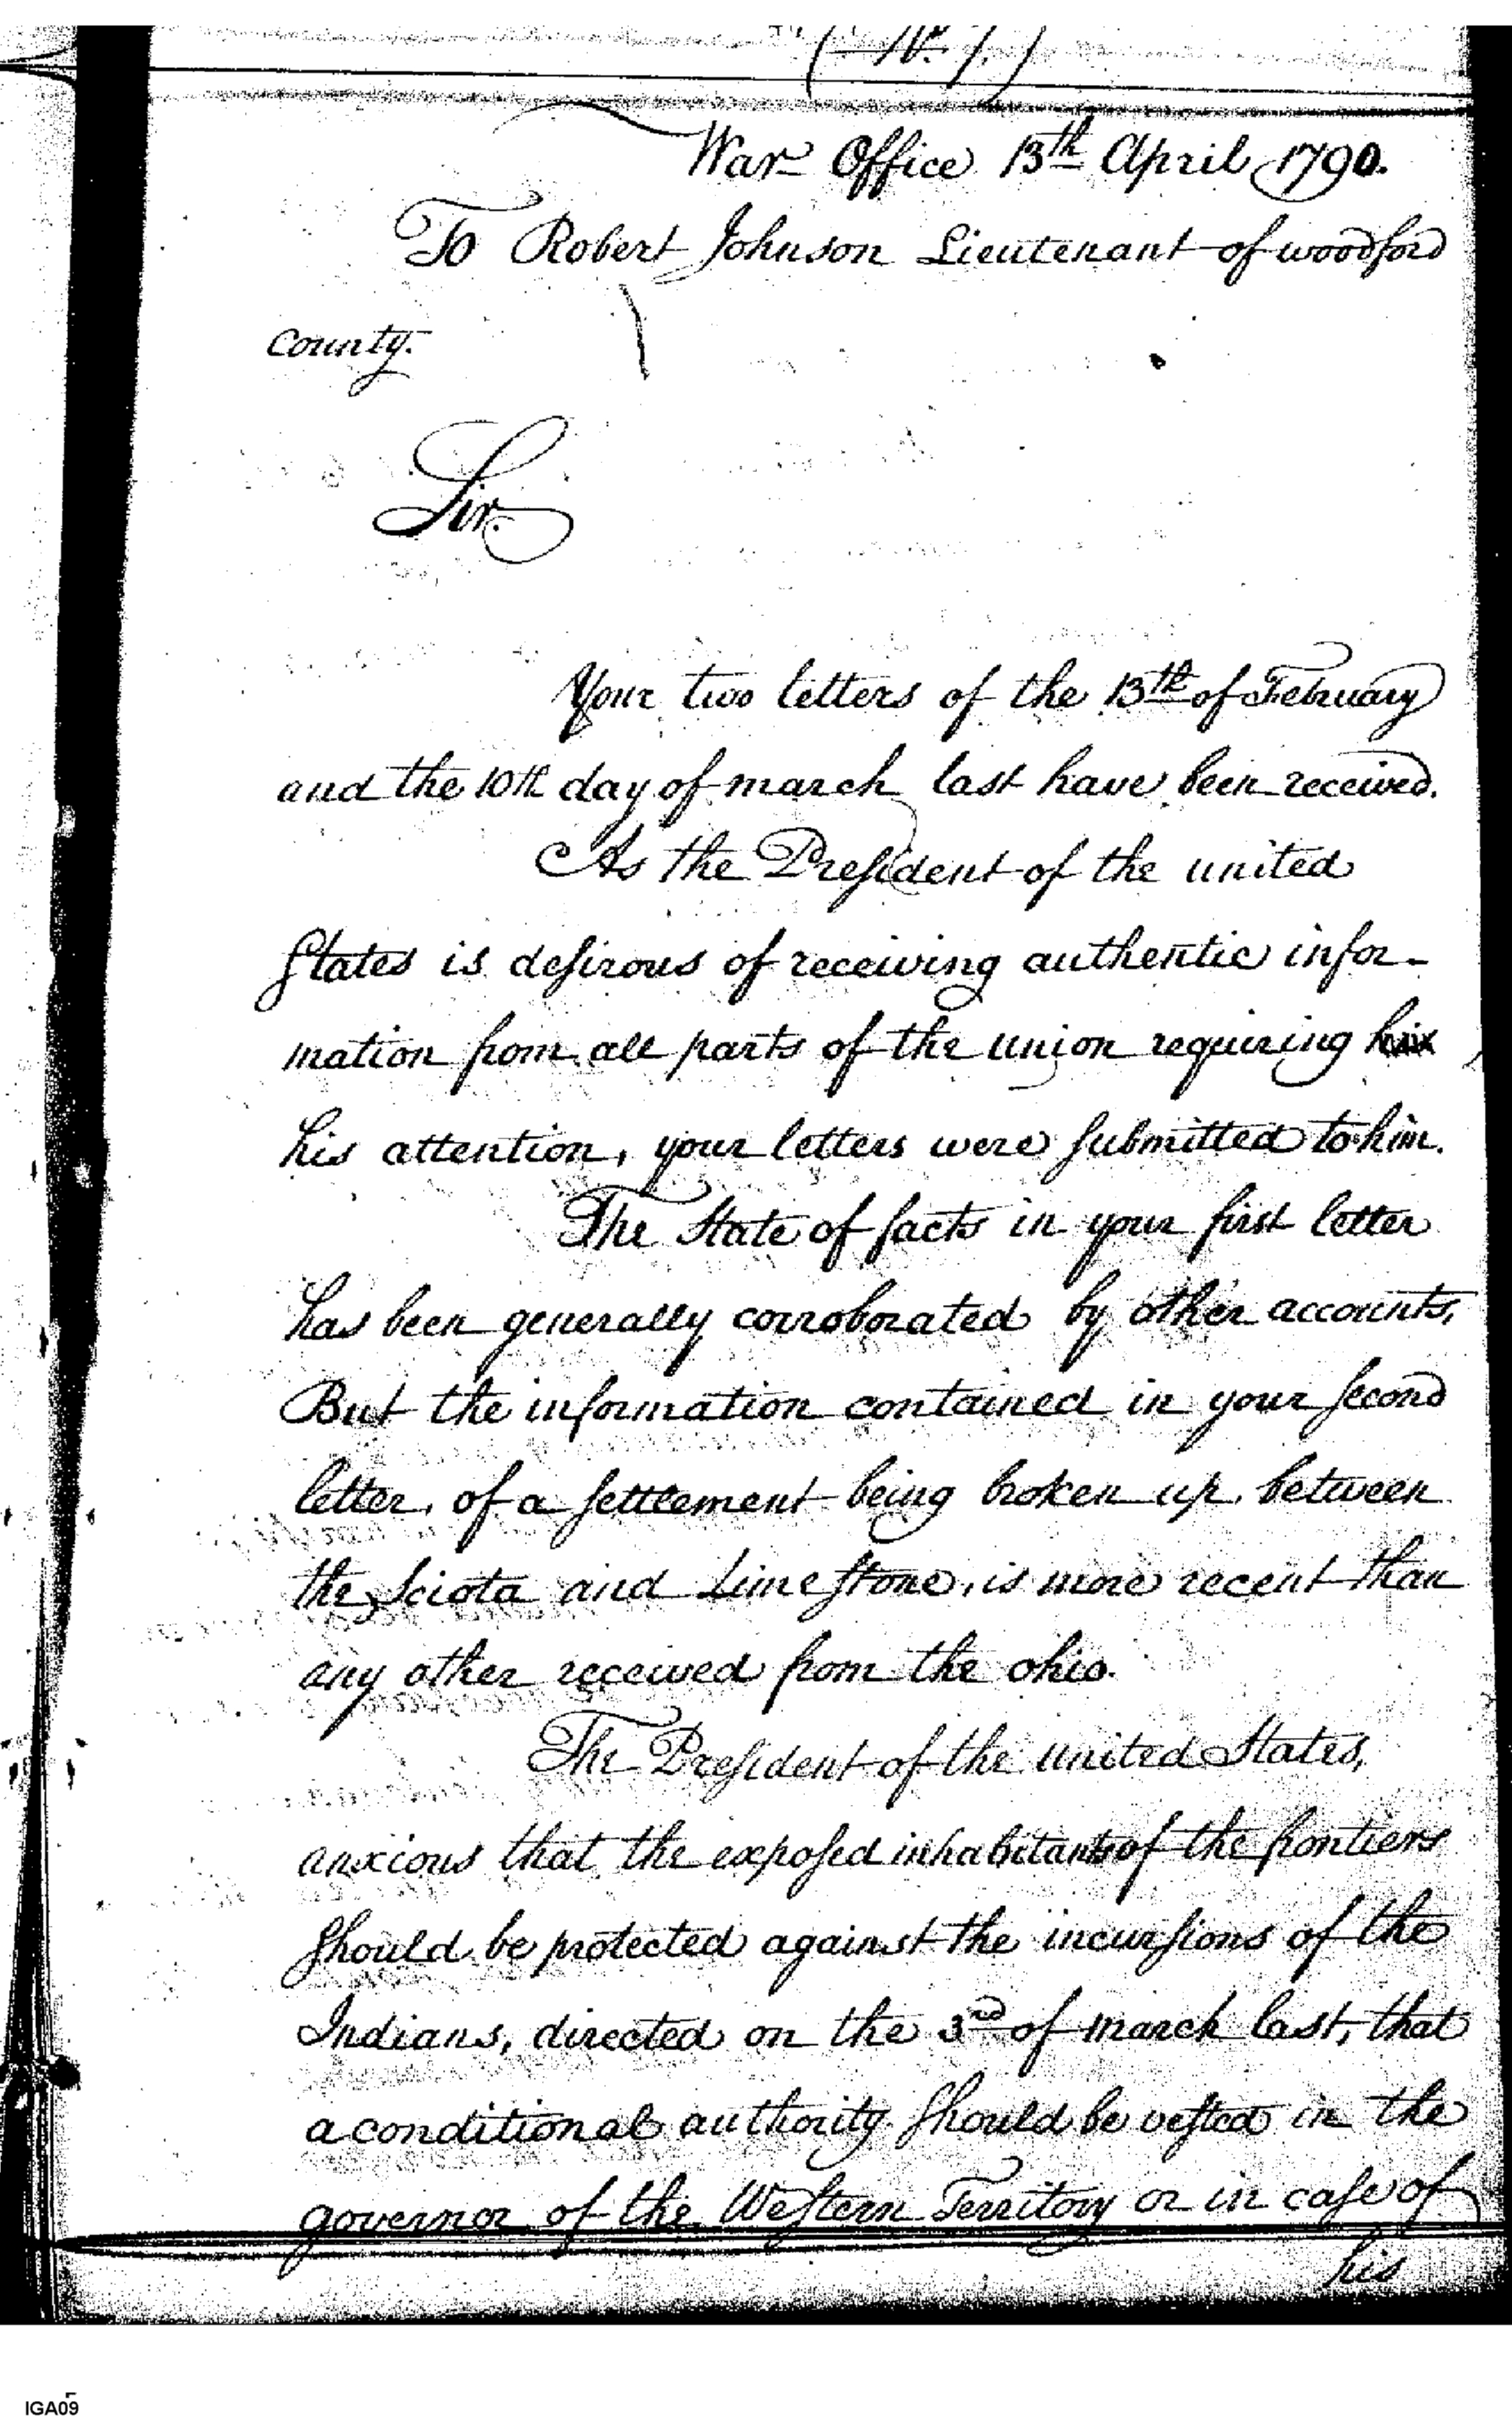 (No. 1.)
War Office 13th April 1790.
To Robert Johnson Lieutenant of woodford
County.
Sir.
Your two letters of the 13th of February
and the 10th day of march last have been received.
As the President of the united
States is desirous of receiving authentic infor-
mation from all parts of the union requiring
his attention, your letters were submitted to him.
The State of facts in your first letter
has been generally corroborated by other accounts,
But the information contained in your second
letter, of a settlement being broken up, between
the Sciota and Limestone, is more recent than
any other received from the ohio.
The President of the united States,
anxious that the exposed inhabitants of the frontiers
should be protected against the incursions of the
Indians, directed on the 3rd of march last, that
a conditional authority should be vested in the
governor of the Western Territory or in case of
his
IGA09